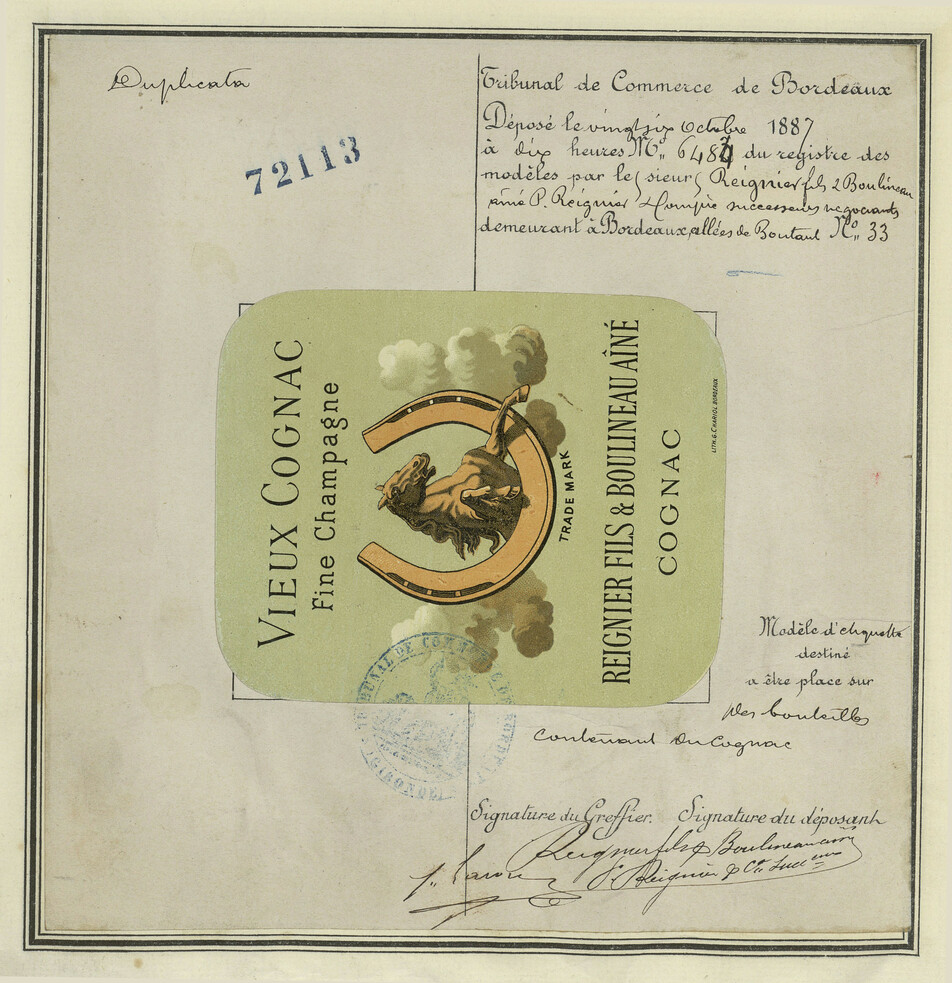 Duplicata
72113
Tribunal de Commerce de Bordeaux
Déposé le vingt six Octobre 1887
à dix heures N° du registre des
modèles par les sieurs Reignier fils & Boulineau
aîné P. Reignier & Compie successeurs négociants
demeurant à Bordeaux, allées de Boutaut N° 33
VIEUX COGNAC
Fine Champagne
TRADE MARK
REIGNIER FILS & BOULINEAU AÎNÉ
COGNAC
LITH. G. CHARIOL BORDEAUX
TRIBUNAL DE COMMERCE DE BORDEAUX
(GIRONDE)
Modèle d'étiquette
destiné
a être place sur
des bouteilles
contenant du Cognac
Signature du Greffier. Signature du déposant
Reignier fils & Boulineau aîné
P. Reignier & Cie Succrs